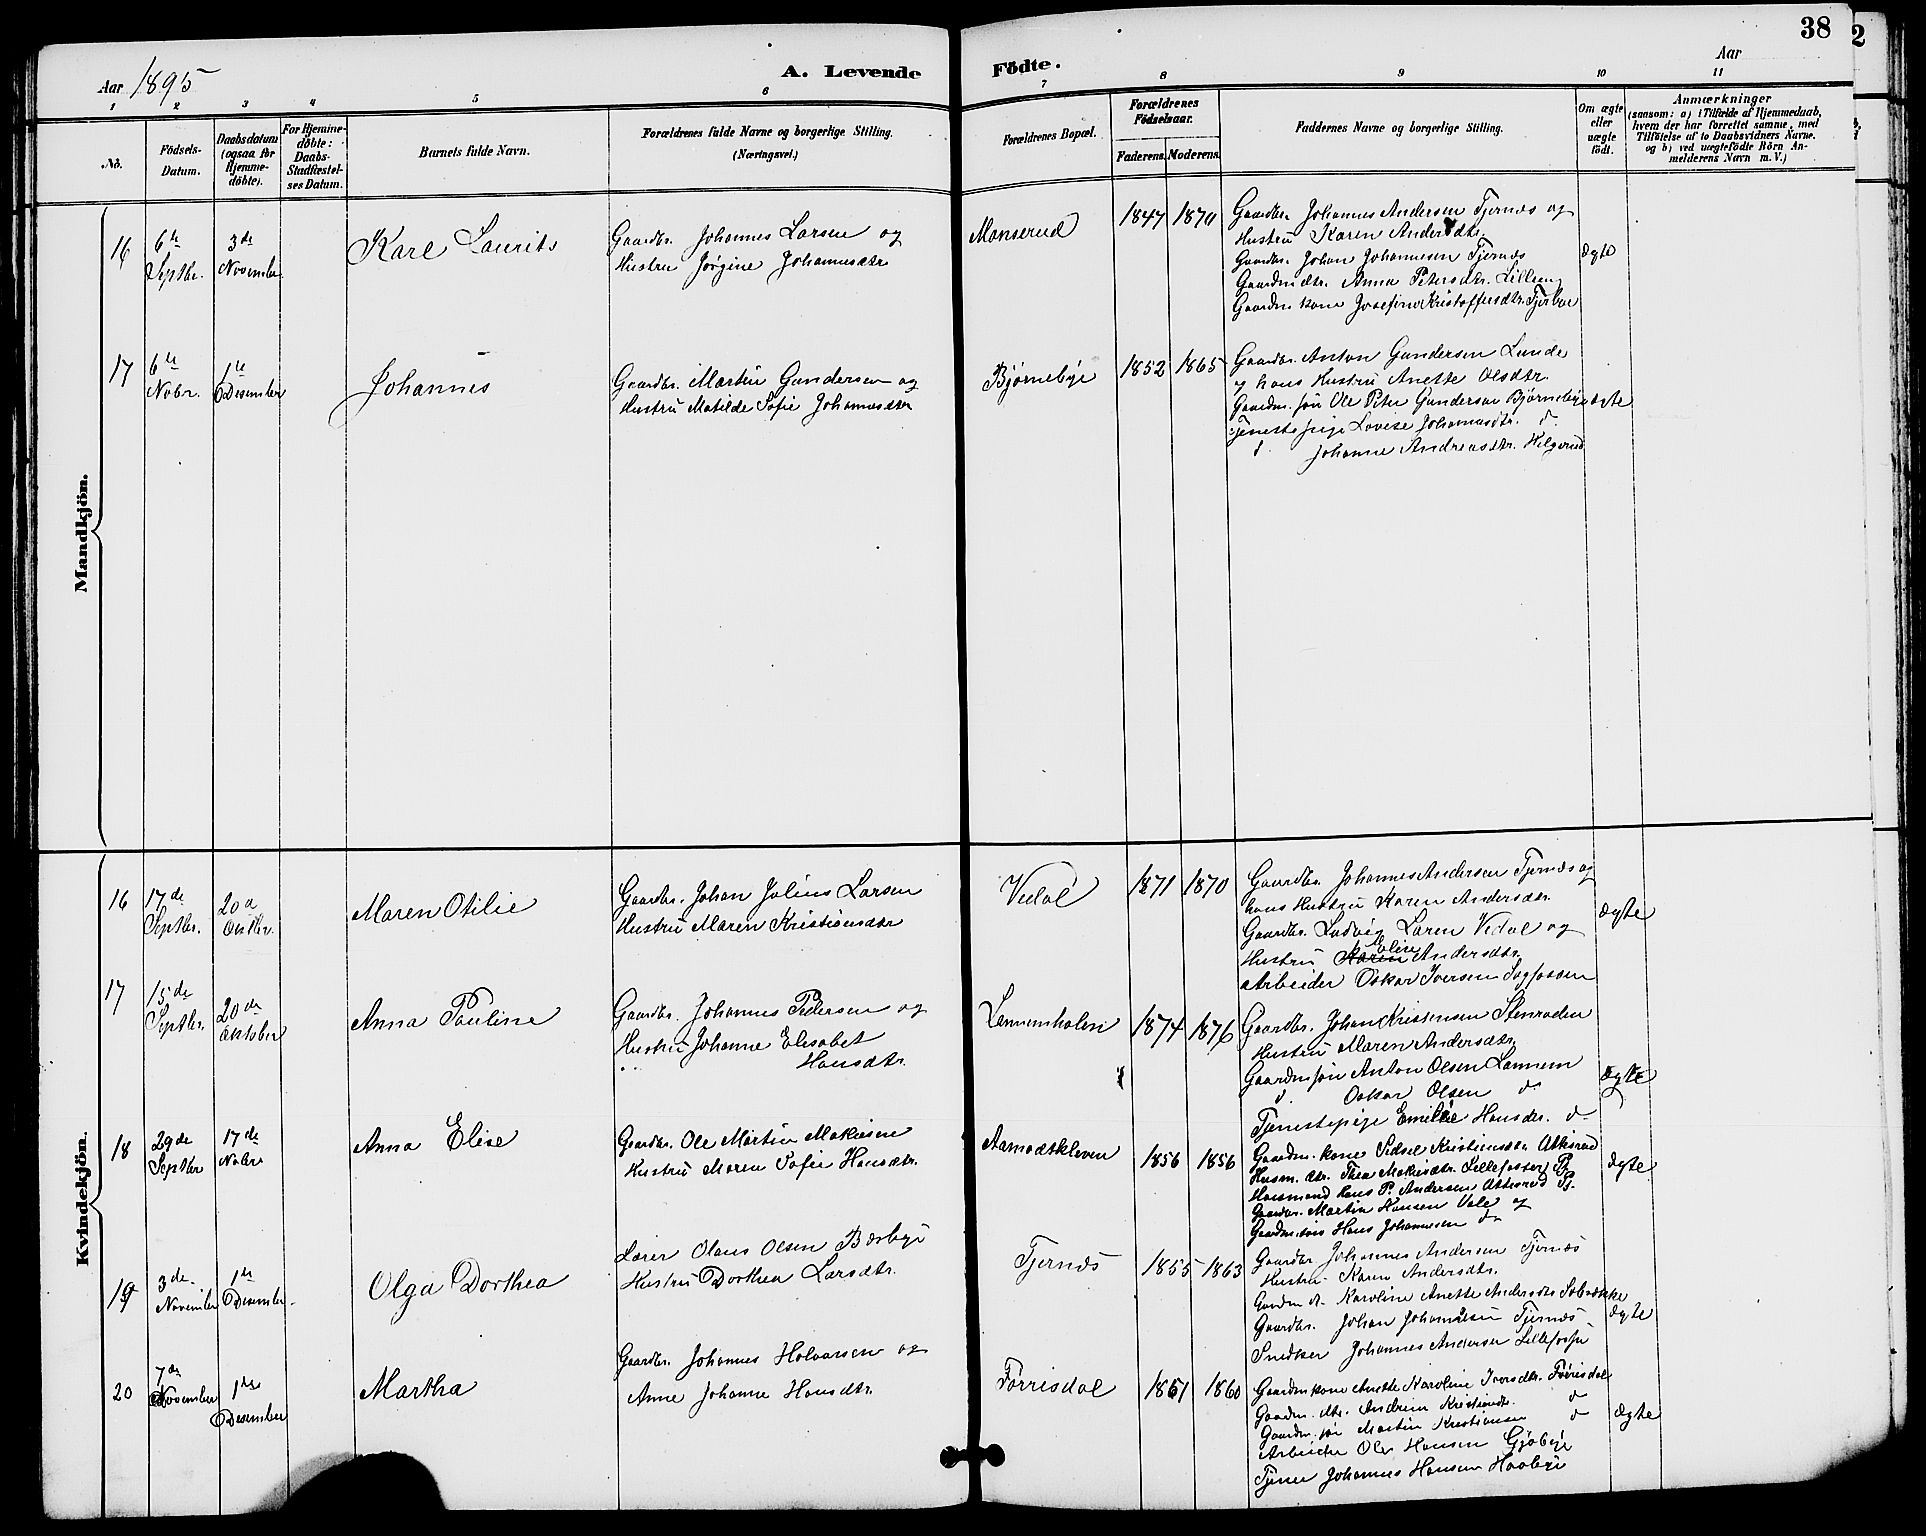 38
2
Aar 1895
A. Levende Födte.
Aar
1 2 3 4 5 6 7 8 9 10 11
No.
Födsels-Datum.
Daabsdatum (ogsaa for Hjemme-döbte).
For Hjemme-döbte: Daabs-Stadfæstel-ses Datum.
Barnets fulde Navn.
Forældrenes fulde Navne og borgerlige Stilling.
(Næringsvei.)
Forældrenes Bopæl.
Forældrenes Födselsaar.
Faderens. Moderens.
Faddernes Navne og borgerlige Stilling.
Om ægte eller uægte födt.
Anmærkninger
(saasom: a) i Tilfælde af Hjemmedaab,
hvem der har forrettet samme, med
Tilföielse af to Daabsvidners Navne.
og b) ved uægtefödte Börn An-
melderens Navn m. V.)
Mandkjön.
16
6te Septbr.
3de November
Karl Laurits
Gaardbr. Johannes Larsen og
Hustru Jørgine Johannesdtr
Monserud
1847 1870
Gaardbr. Johannes Andersen Tjernæs og
Hustru Karen Andersdtr.
Gaardbr. Johan Johannesen Tjernæs
Gaardmdtr. Anna Petersdtr. Lilleeng
Gaardm kone Josefine Kristoffersdtr.
Ægte
17
6te Nobr.
1te Desember
Johannes
Gaardbr. Martin Gundersen og
Hustru Matilde Sofie Johannesdtr
Bjørnebye
1852 1865
Gaardbr. Anton Gundersen Lunde
og hans Hustru Anette Olsdtr.
Gaardm. søn Ole Peter Gundersen Bjørnebye
Tjenestepige Lovise Johannesdtr. d.
d. Johanne Andreasdtr. Helgerud
Ægte
Kvindekjön.
16
17de Septbr.
20de Oktbr.
Maren Otilie
Gaardbr. Johan Julius Larsen
Hustru Maren Kristiansdtr
Vedal
1871 1870
Gaardbr. Johannes Andersen Tjernæs og
hans Hustru Karen Andersdtr.
Gaardbr. Ludvig Larsen Vedal og
Hustru Karen Elise Andersdtr.
Arbeider Oskar Iversen Sagfossen
Ægte
17
15de Septbr.
20de Oktober
Anna Pauline
Gaardbr. Johannes Pedersen og
Hustru Johanne Elisabet
Hansdtr.
Lannemholen
1874 1876
Gaardbr. Johan Kristensen Stenroden
Hustru Maren Andersdtr.
Gaardm søn Anton Olsen Lannem
d. Oskar Olsen d
Tjenestepige Emilie Hansdtr. d
Ægte
18
29de Septbr
17de Nobr
Anna Elise
Gaardbr. Ole Martin Mathisen
Hustru Maren Sofie Hansdtr.
Aamodtkleven
1856 1856
Gaardm. kone Sidsel Kristiansdtr. Atkisrud
Husm. dtr. Thea Mathisdtr. Lillefossen
Husmand Hans P. Andersen Atkisrud
Gaardbr. Martin Hansen Vale og
Gaardm. søn Hans Johannesen d
Ægte
19
3de November
1te Desember
Olga Dorthea
Lærer Olaus Olsen Bærbye
Hustru Dorthea Larsdtr.
Tjernæs
1855 1863
Gaardbr. Johannes Andersen Tjernæs
Hustru Karen Andersdtr.
Gaardm d. Karoline Anette Andersdtr
Gaardbr. Johan Johannesen Tjernæs
Snedker Johannes Andersen Lillefosse
Ægte
20
7de November
1te Desember
Martha
Gaardbr. Johannes Halvorsen og
Anne Johanne Hansdtr.
Førrisdal
1861 1860
Gaardm kone Anette Karoline Iversdtr. Førrisdal
Gaardm. dtr. Andrine Kristiansdtr. d
Gaardm. søn Martin Kristiansen d
Arbeider Ole Hansen Gjøbye
Tjener Johannes Hansen Haabye
Ægte